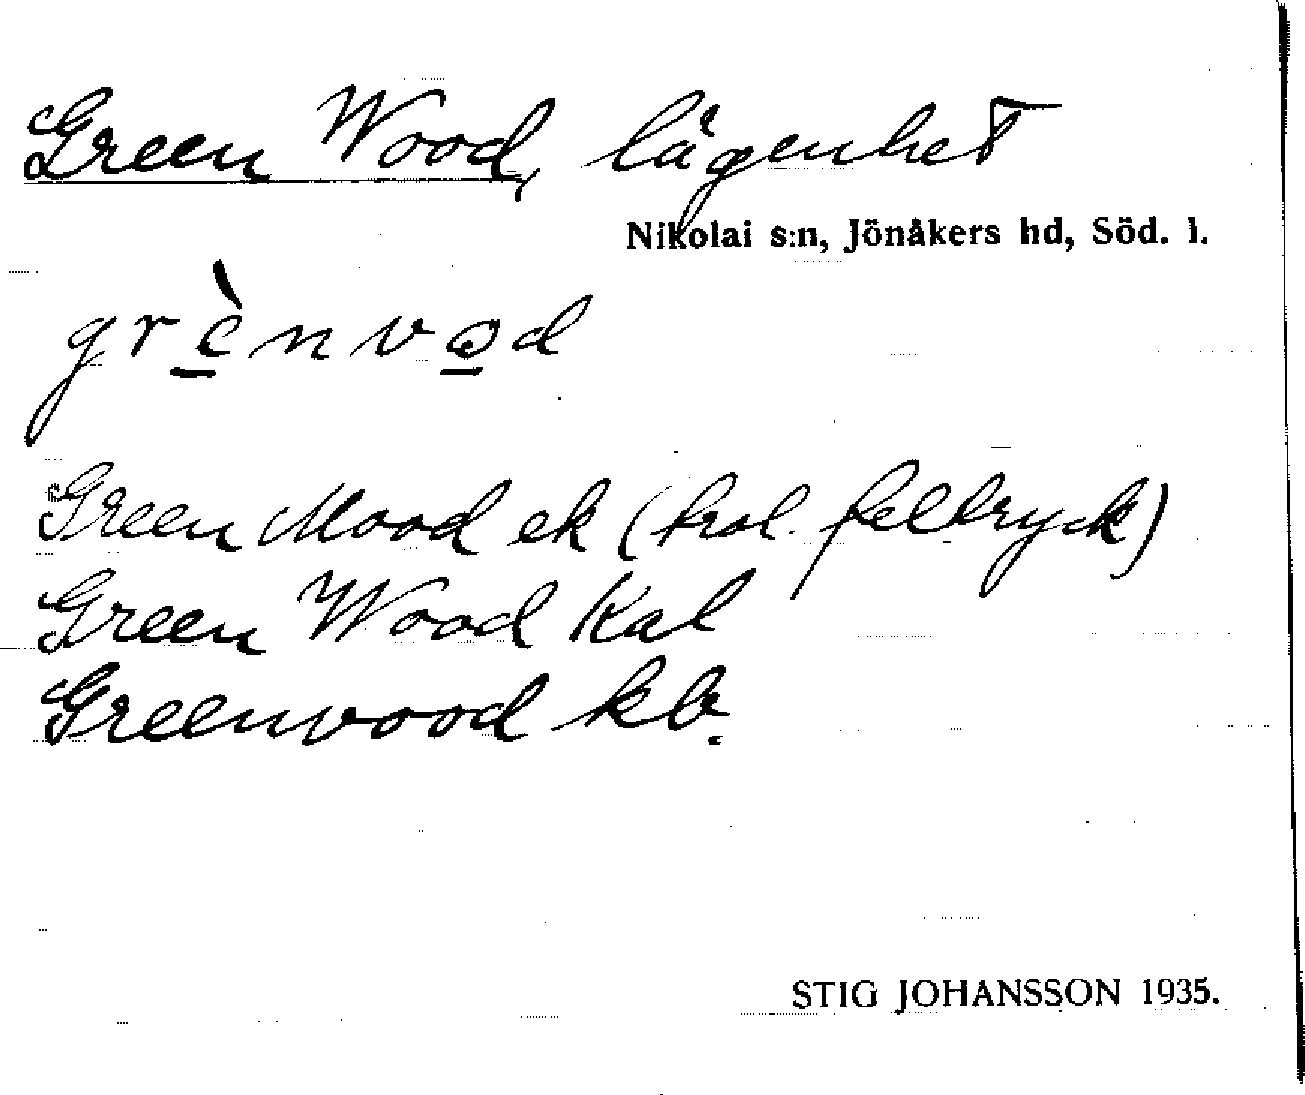 Green Wood, lägenhet
Nikolai s:n, Jönåkers hd, Söd. l.
grè̱nvo̱d
Green Mood ek (trol. feltryck)
Green Wood Kal
Greenwood kb.
STIG JOHANSSON 1935.